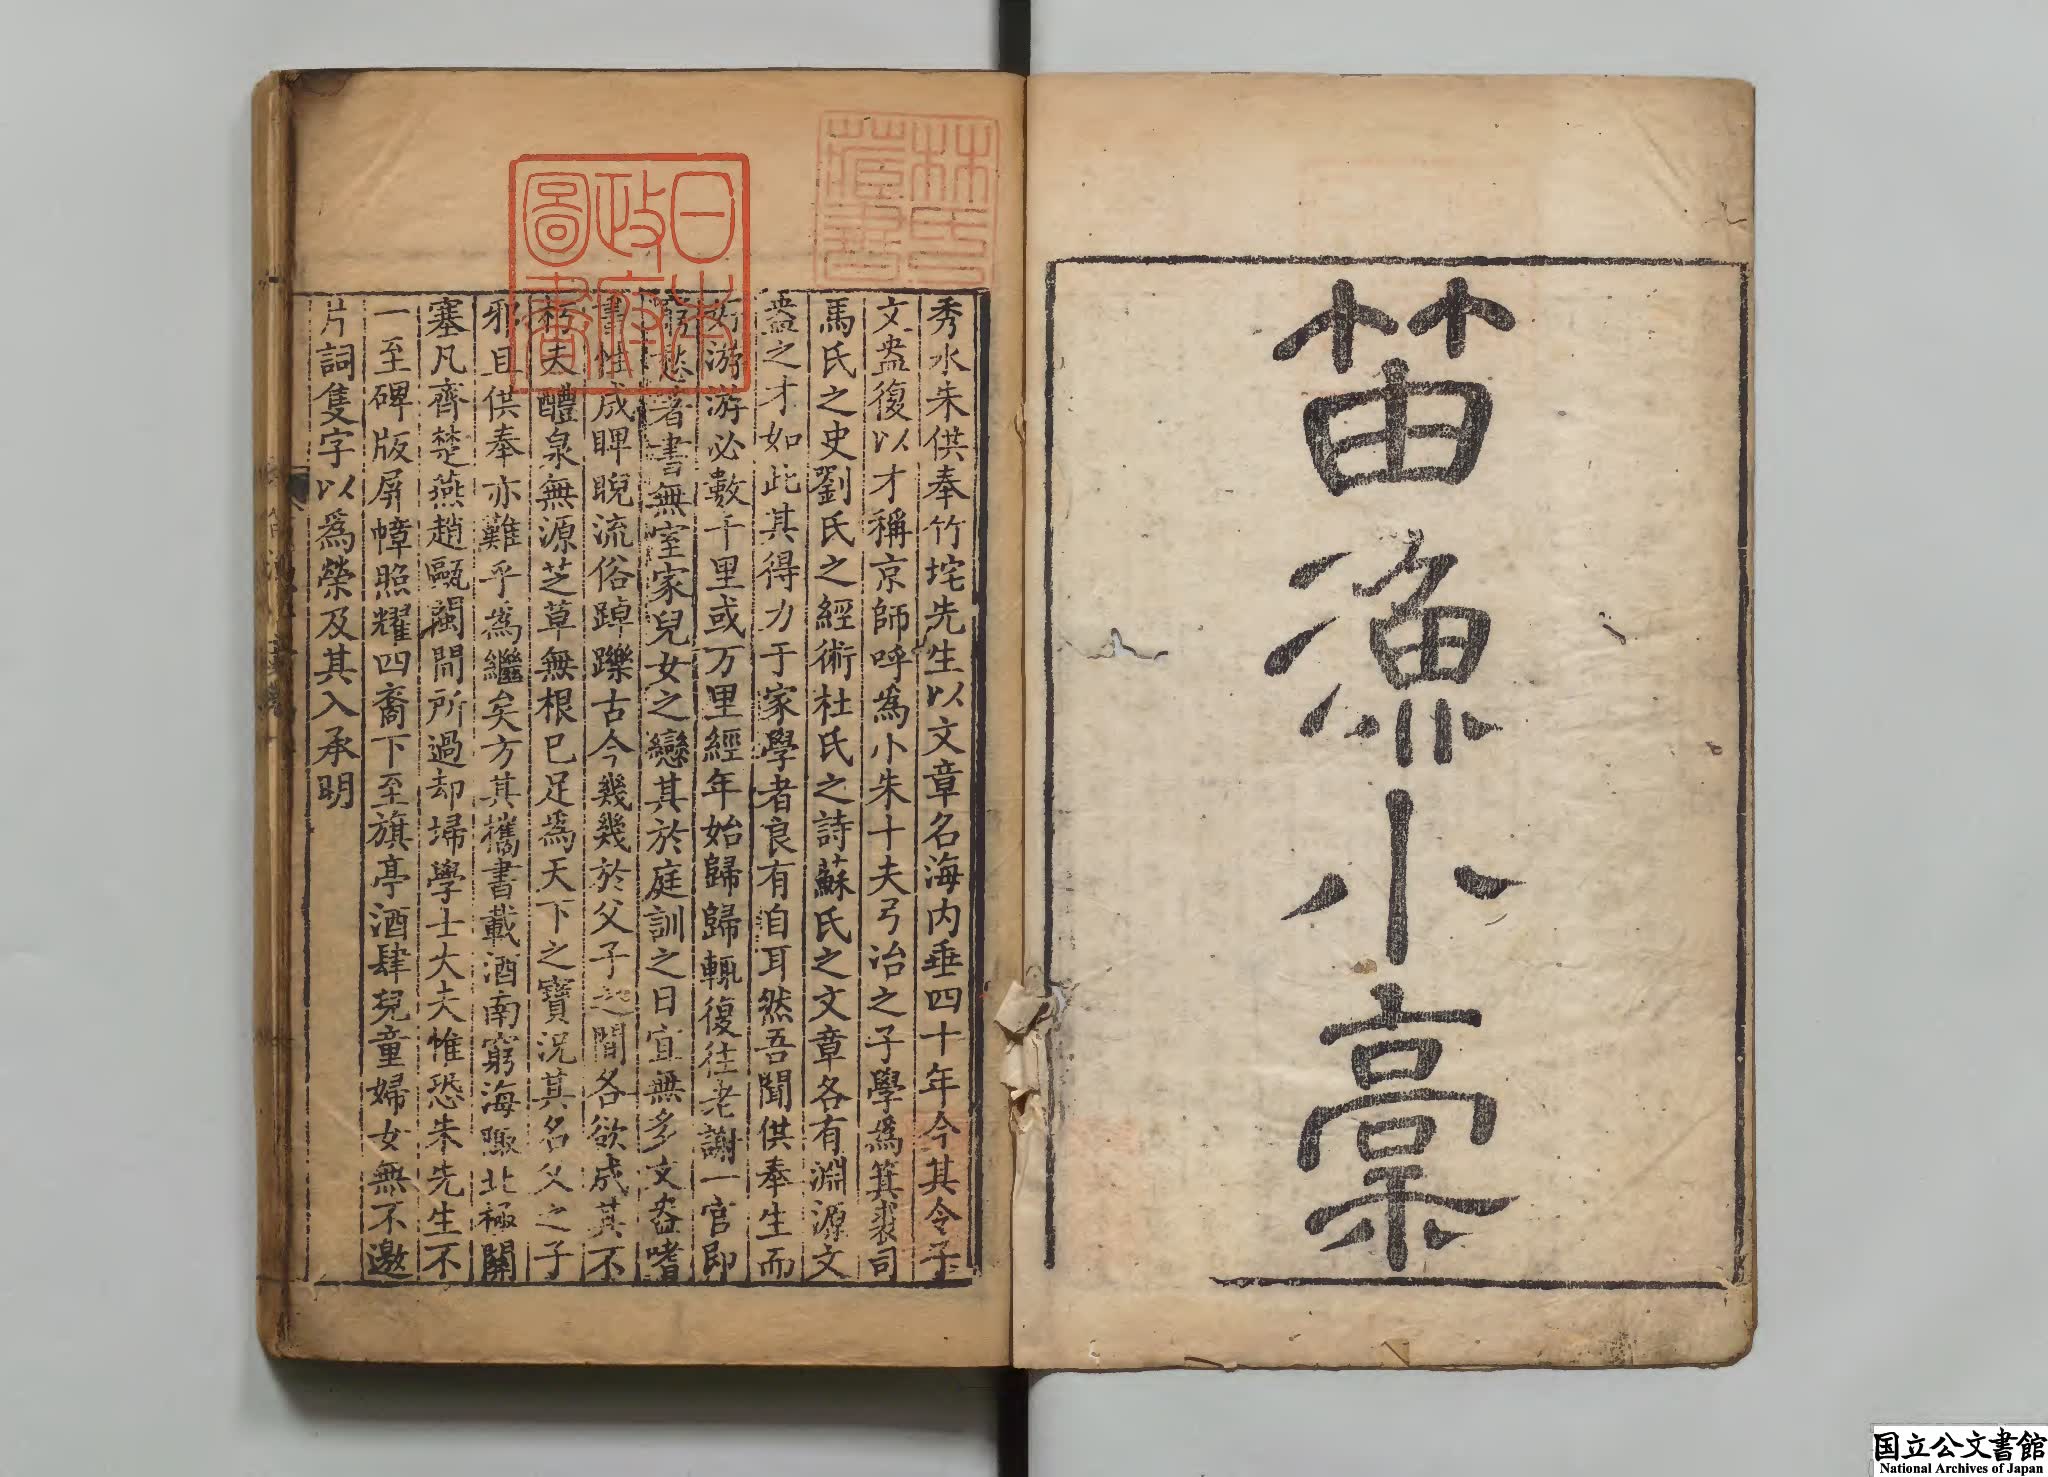 笛漁小稾
林氏
藏書
日本
政府
圖書
秀水朱供奉竹垞先生以文章名海内垂四十年今其令子
文盎復以才稱京師呼為小朱十夫弓冶之子學為箕裘司
馬氏之史劉氏之經術杜氏之詩蘇氏之文章各有淵源文
盎之才如此其得力于家學者良有自耳然吾聞供奉生而
好游游必數千里或万里經年始歸歸輒復往老謝一官即
窮愁著書無室家兒女之戀其於庭訓之日宜無多文盎嗜
書性成睥睨流俗踔躒古今幾幾於父子之間各欲成其不
朽夫醴泉無源芝草無根已足為天下之寶況其名父之子
邪且供奉亦難乎為繼矣方其攜書載酒南窮海陬北極關
塞凡齊楚燕趙甌閩間所過却埽學士大夫惟恐朱先生不
一至碑版屏幛照耀四裔下至旗亭酒肆兒童婦女無不邀
片詞隻字以為榮及其入承明
国立公文書館
National Archives of Japan